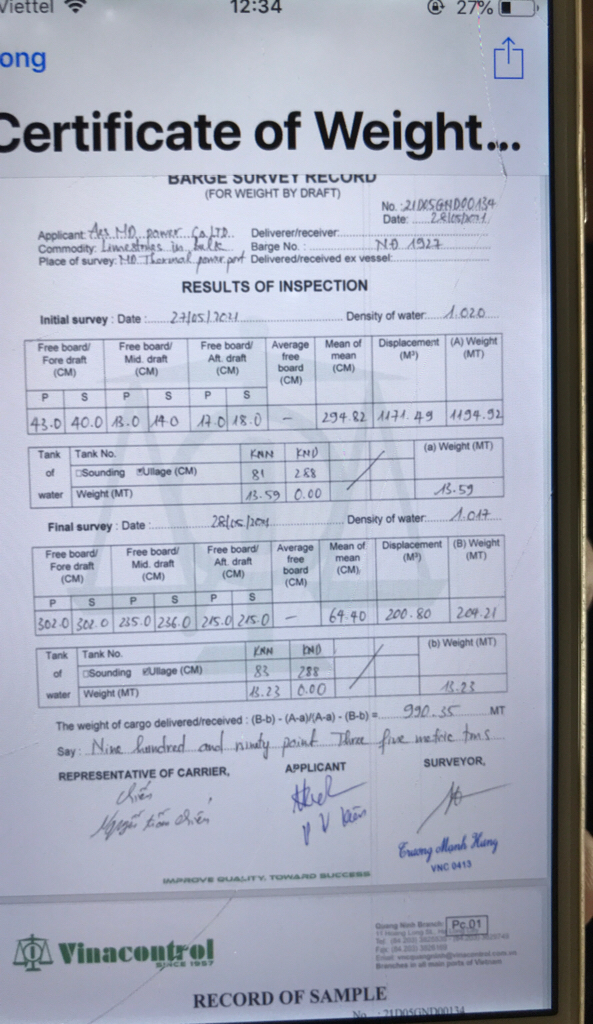 Viettel 12:34 27%
ong
Certificate of Weight...
BARGE SURVEY RECORD
(FOR WEIGHT BY DRAFT)
No. :21D05GND00134
Date: 28/05/2021
Applicant: MD power Co LTD. Deliverer/receiver:
Commodity: Limestones in bulk Barge No. : NĐ 1927
Place of survey: MD Thermal power port Delivered/received ex vessel:
RESULTS OF INSPECTION
Initial survey : Date : 27/05/2021 Density of water: 1.020
Free board/ Fore draft (CM) Free board/ Mid. draft (CM) Free board/ Aft. draft (CM) Average free board (CM) Mean of mean (CM) Displacement (M³) (A) Weight (MT)
P S P S P S
43.0 40.0 13.0 14.0 17.0 18.0 – 294.82 1171.49 1194.92
Tank of water Tank No. KNN KND (a) Weight (MT)
□Sounding ☑Ullage (CM) 81 288
Weight (MT) 13.59 0.00 13.59
Final survey : Date : 28/05/2021 Density of water: 1.017
Free board/ Fore draft (CM) Free board/ Mid. draft (CM) Free board/ Aft. draft (CM) Average free board (CM) Mean of mean (CM) Displacement (M³) (B) Weight (MT)
P S P S P S
302.0 302.0 235.0 236.0 215.0 215.0 – 64.40 200.80 204.21
Tank of water Tank No. KNN KND (b) Weight (MT)
□Sounding ☑Ullage (CM) 83 288
Weight (MT) 13.23 0.00 13.23
The weight of cargo delivered/received : (B-b) - (A-a)/(A-a) - (B-b) = 990.35 MT
Say: Nine hundred and ninety point Three five metric tons
REPRESENTATIVE OF CARRIER, APPLICANT SURVEYOR,
Chiến
Nguyễn Chiến
Trương Mạnh Hùng
VNC 0413
IMPROVE QUALITY, TOWARD SUCCESS
Vinacontrol
SINCE 1957
Quang Ninh Branch
Pc.01
Branches in all main ports of Vietnam
RECORD OF SAMPLE
No. : 21D05GND00134